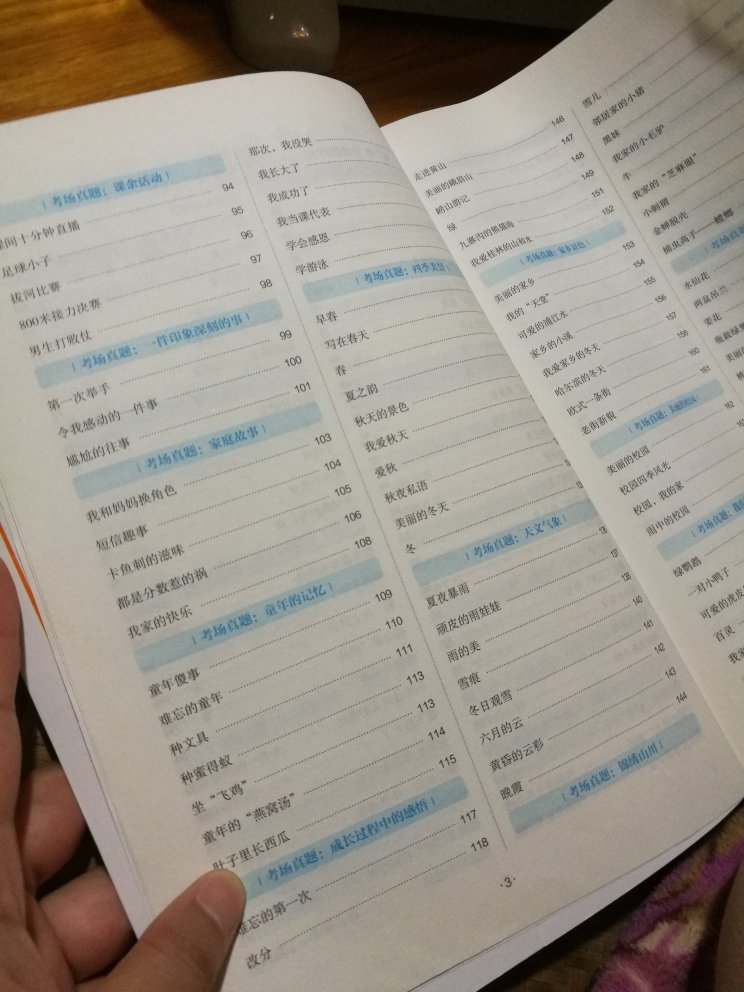 | 考场真题：课余活动 |
间十分钟直播 94
足球小子 95
拔河比赛 96
800米接力决赛 97
男生打败仗 98
| 考场真题：一件印象深刻的事 |
第一次举手 99
令我感动的一件事 100
尴尬的往事 101
| 考场真题：家庭故事 |
我和妈妈换角色 103
短信趣事 104
卡鱼刺的滋味 105
都是分数惹的祸 106
我家的快乐 108
| 考场真题：童年的记忆 |
童年傻事 109
难忘的童年 110
种文具 111
种蜜得蚁 113
坐“飞鸡” 113
童年的“燕窝汤” 114
肚子里长西瓜 115
| 考场真题：成长过程中的感悟 |
难忘的第一次 117
改分 118
那次，我没哭
我长大了
我成功了
我当课代表
学会感恩
学游泳
| 考场真题：四季美景 |
早春
写在春天
春
夏之韵
秋天的景色
我爱秋天
爱秋
秋夜私语
美丽的冬天
冬
| 考场真题：天文气象 |
夏夜暴雨
顽皮的雨娃娃
雨的美 138
雪痕 140
冬日观雪 141
六月的云 142
黄昏的云彩 143
晚霞 144
| 考场真题：锦绣山川 |
·3·
走进黄山 146
美丽的峨眉山 147
崂山游记 148
绿 149
九寨沟的熊猫海 151
我爱桂林的山和水 152
| 考场真题：家乡景色 |
美丽的家乡 153
我的“天堂” 154
可爱的浦江水 155
家乡的小溪 156
我爱家乡的冬天 157
哈尔滨的冬天 158
欧式一条街 160
老街新貌 161
| 考场真题：美丽校园 |
美丽的校园 162
校园四季风光
校园，我的家
雨中的校园
| 考场真题：
绿鹦鹉
一对小鸭子
可爱的虎皮
百灵
我家
雪儿
邻居家的小猪
黑妹
我家的小毛驴
牛
我家的“芝麻眼”
小蝈蝈
金蝉脱壳
捕虫高手——螳螂
| 考场真题
水仙花
两盆吊兰
昙花